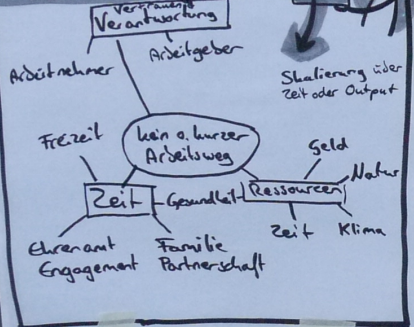 Vertrauen
Verantwortung
Arbeitgeber
Arbeitnehmer
Skalierung über
Zeit oder Output
kein o. kurzer
Arbeitsweg
Freizeit
Zeit
Gesundheit
Ressourcen
Geld
Natur
Zeit
Klima
Ehrenamt
Engagement
Familie
Partnerschaft